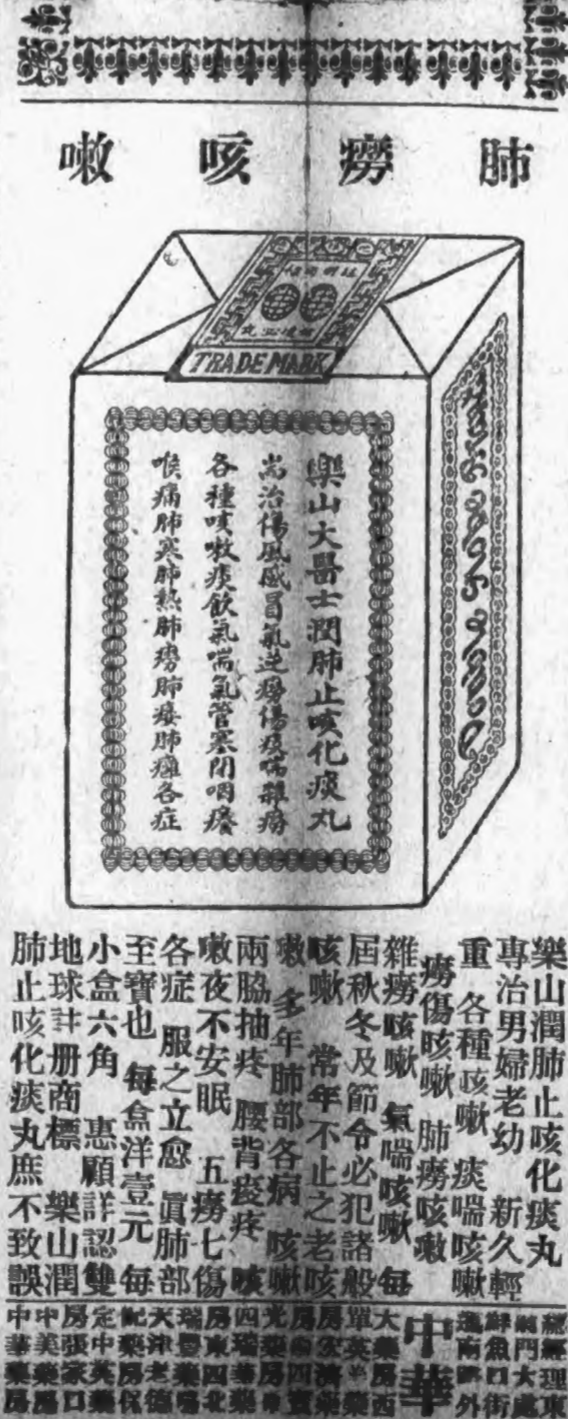 肺癆咳嗽
TRADE MARK
樂山大醫士潤肺止咳化痰丸
耑治傷風感冒氣逆癆傷痰喘雜癆
各種咳嗽痰飲氣喘氣管塞閉咽癢
喉痛肺寒肺熱肺癆肺痿肺癰各症
樂山潤肺止咳化痰丸
專治男婦老幼 新久輕
重 各種咳嗽 痰喘咳嗽
癆傷咳嗽 肺癆咳嗽
雜癆咳嗽 氣喘咳嗽 每
屆秋冬及節令必犯諸般
咳嗽 常年不止之老咳
嗽 多年肺部各病 咳嗽
兩脇抽疼 腰背痠疼 咳
嗽夜不安眠 五癆七傷
各症 服之立愈 眞肺部
至寶也 每盒洋壹元 每
小盒六角 惠顧詳認雙
地球註册商標 樂山潤
肺止咳化痰丸庶不致誤
中華
大藥房西
單英
房西四北
天津老德
記藥房保
定中英藥
房張家口
中美藥房
中華藥房